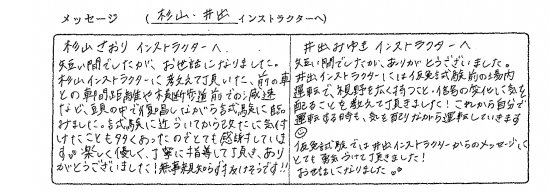 メッセージ （ 杉山・井出 インストラクターへ）
杉山さおり インストラクターへ
短い間でしたが、お世話になりました。
杉山インストラクターに教えて頂いた、前の車
との車間距離や横断歩道前での減速
など、頭の中で復唱しながら試験に臨
みました。試験に近づいてから改めて気付
けたことも多くあったのでとても感謝していま
す。楽しく優しく、丁寧に指導して頂き、あり
がとうございました！無事親知らず抜けそうです!!
井出みゆき インストラクターへ
短い間でしたが、ありがとうございました。
井出インストラクターには仮免試験前の場内
運転で、視野を広く持つこと・信号の変化に気を
配ることを教えて頂きました！これから自分で
運転する時も、気を配りながら運転していきます
仮免試験では井出インストラクターからのメッセージに
とても勇気づけて頂きました！
お世話になりました。